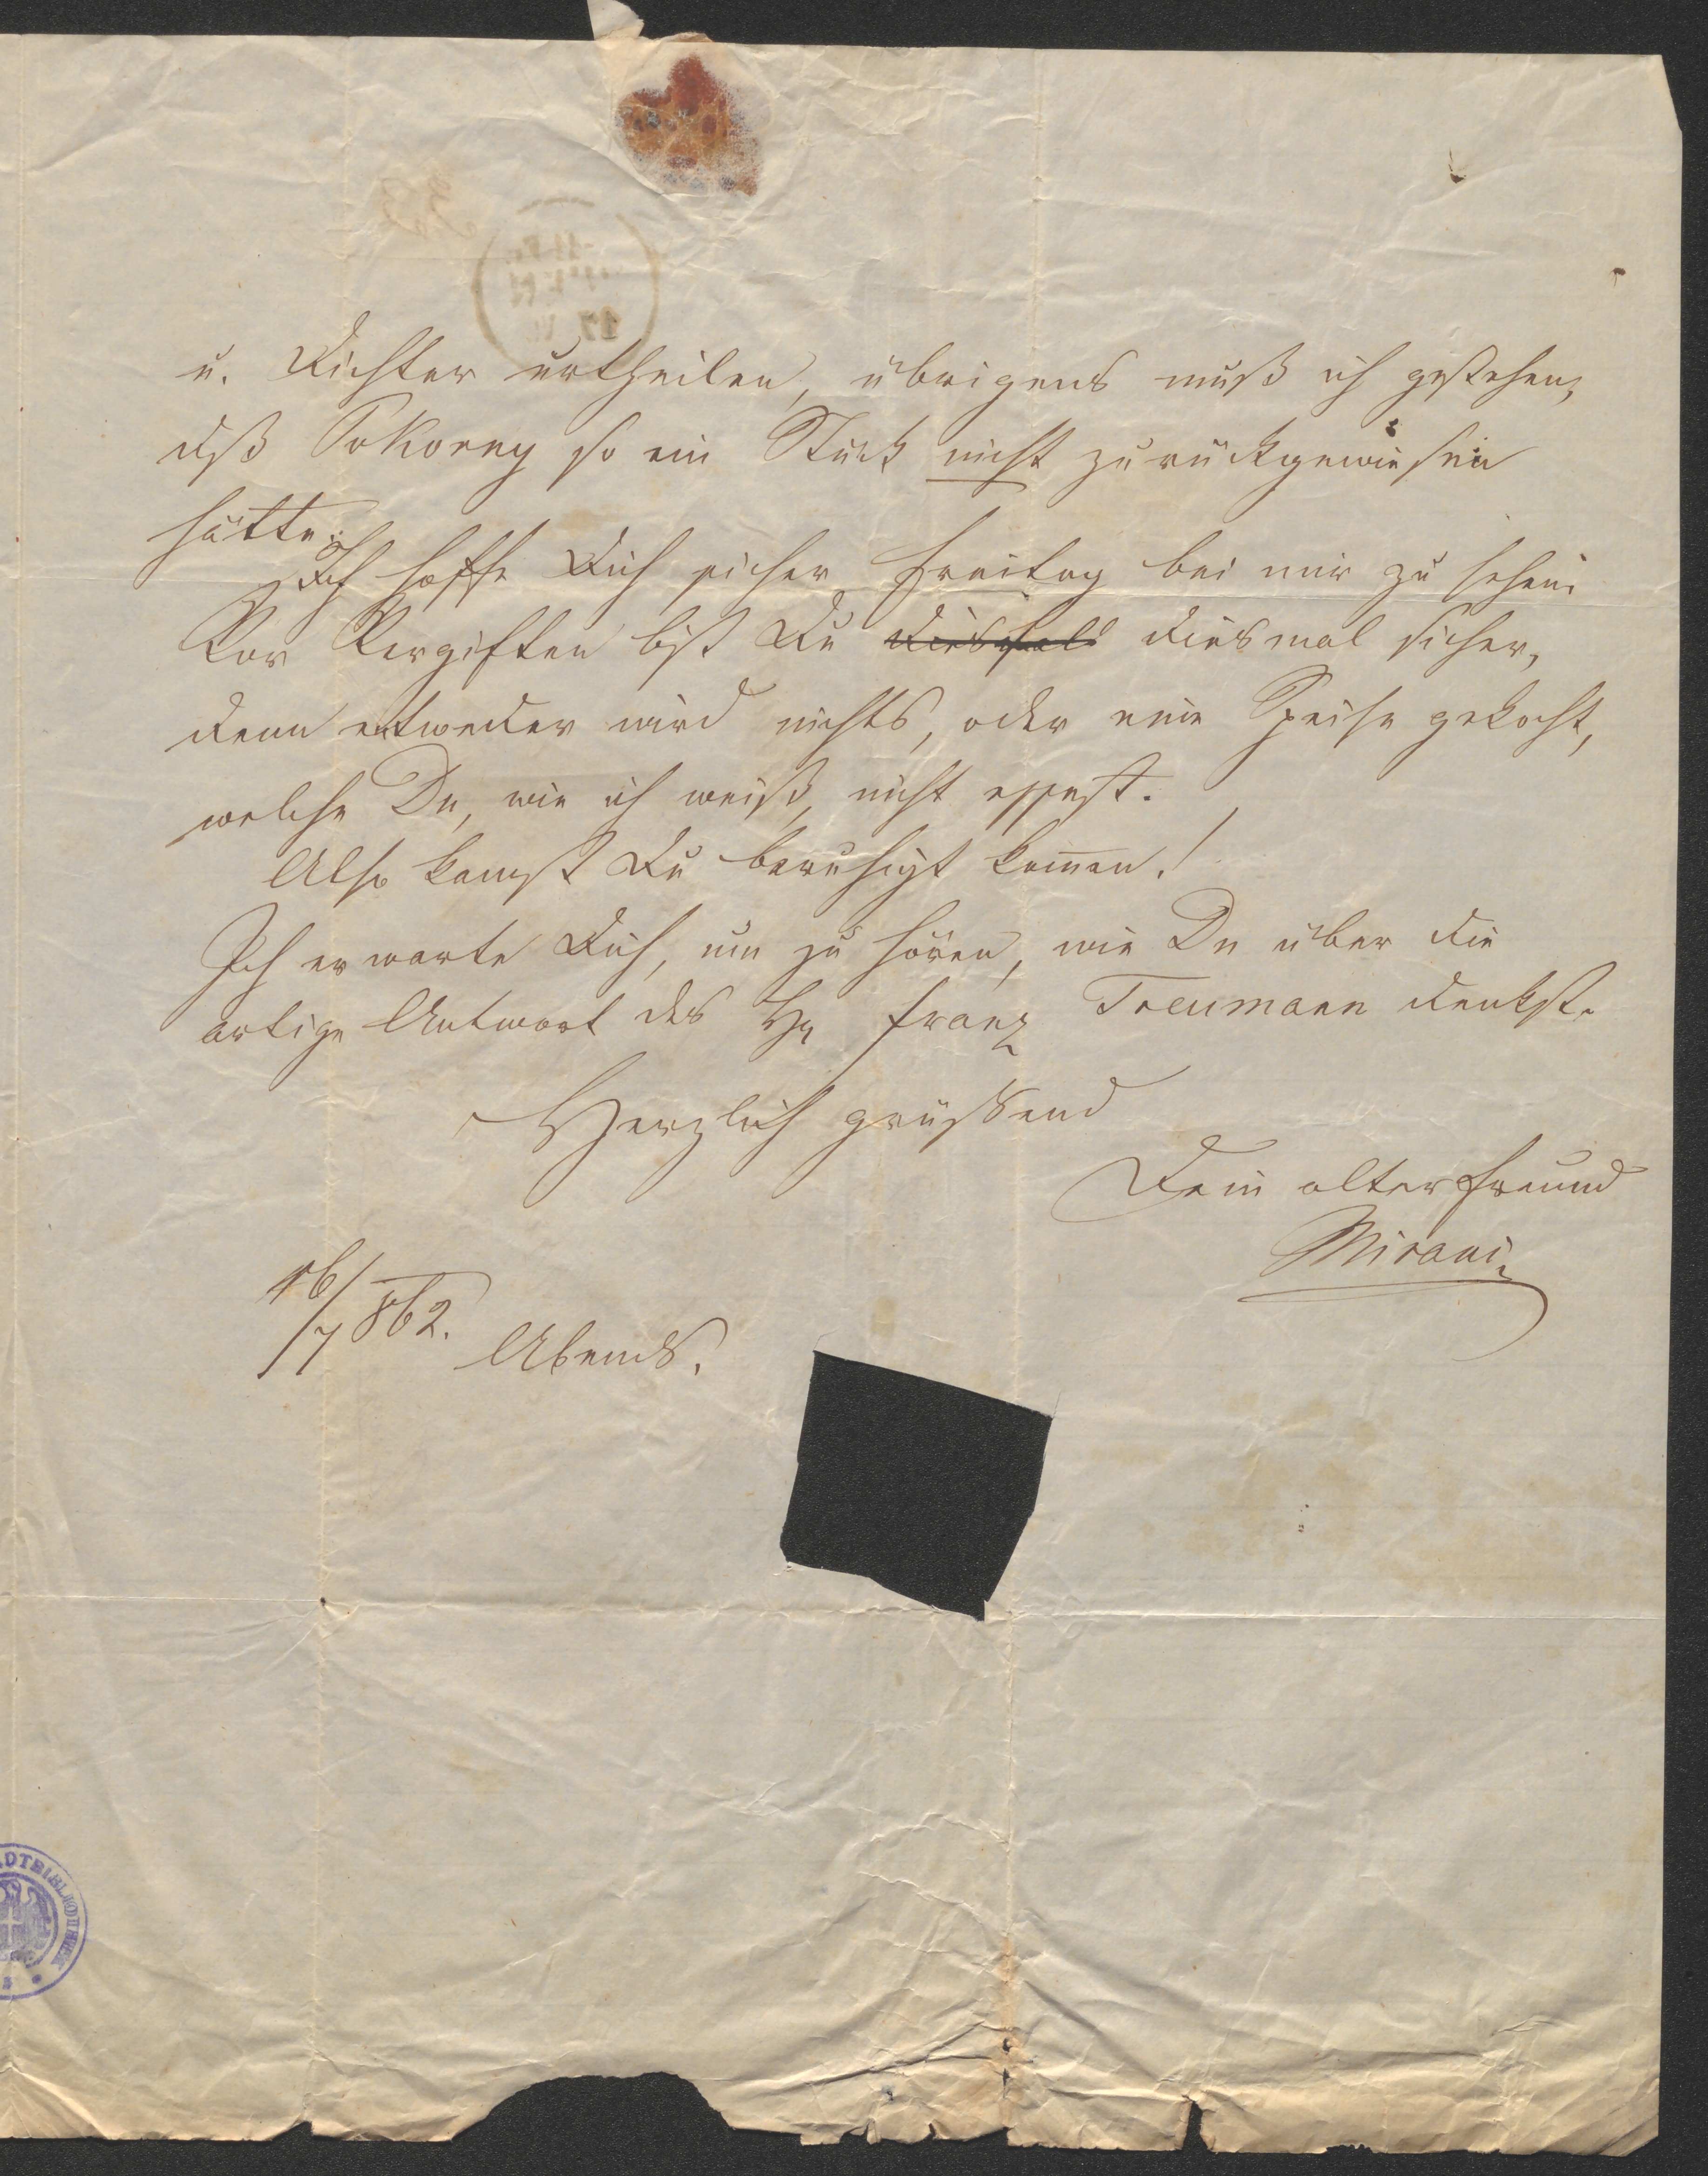 u. Dichter urtheilen, übrigens muß ich gestehen,
dß Pokorny so ein Stück nicht zurückgewiesen
hätte.
Ich hoffe Dich sicher Freitag bei mir zu sehen.
Vor Vergiften bist Du diesmal sicher,
denn entweder wird nichts, oder eine Speise gekocht,
welche Du, wie ich weiß, nicht essest.
Also kannst Du beruhigt kommen!
Ich erwarte Dich, um zu hören, wie Du über die
artige Antwort des Hr Franz Treumann denkst.
Herzlich grüßend
Dein alter Freund
Mirani
16/7 862. Abends.